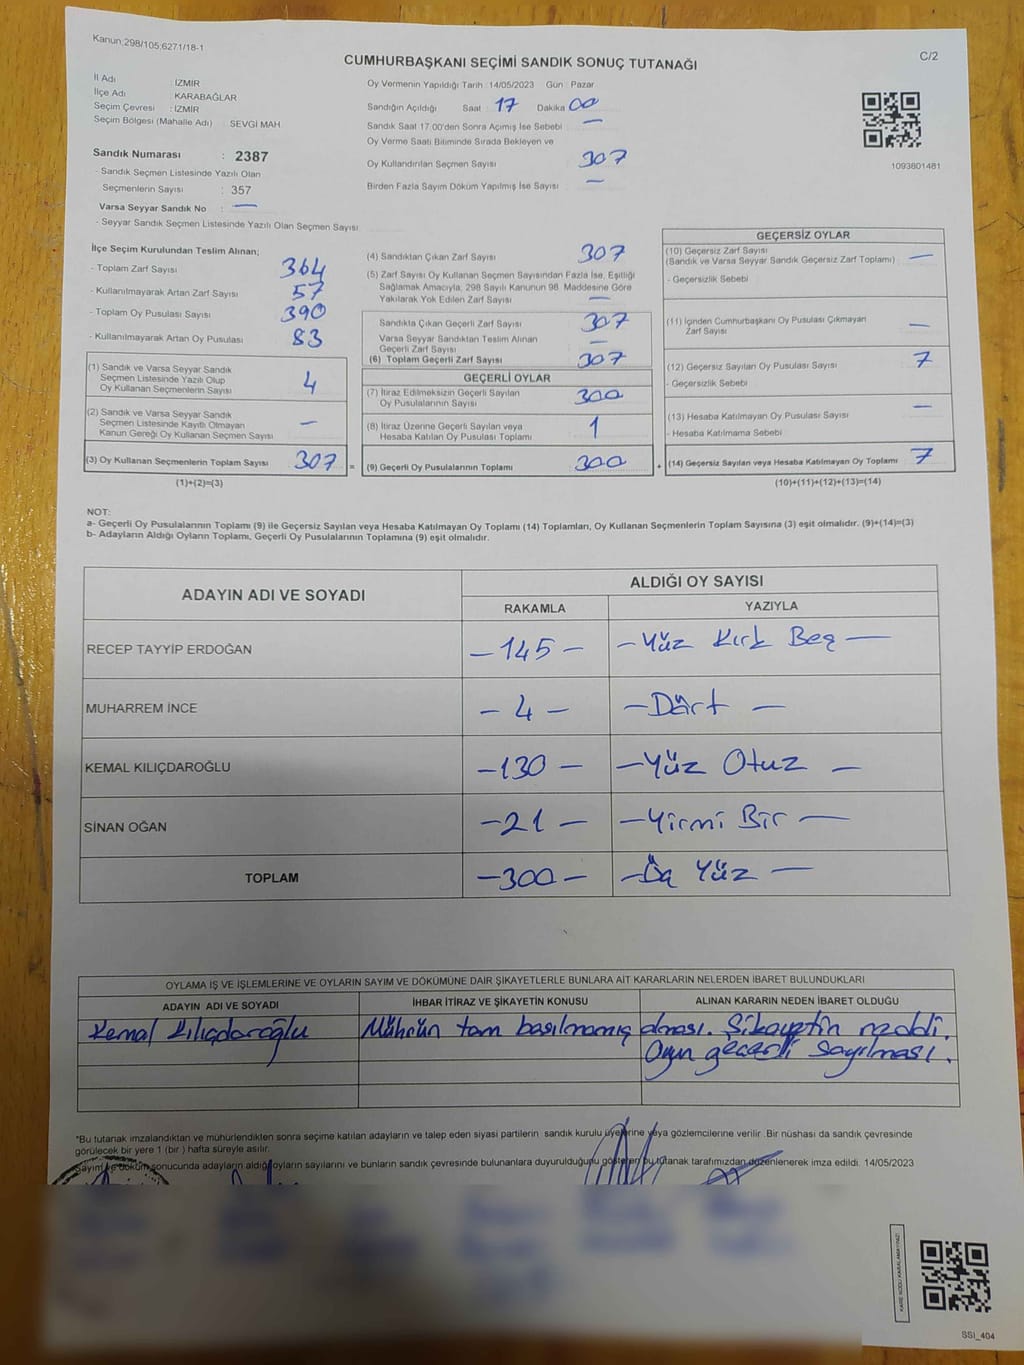 Kanun:298/105;6271/18-1
C/2
CUMHURBAŞKANI SEÇİMİ SANDIK SONUÇ TUTANAĞI
İl Adı : İZMİR
İlçe Adı : KARABAĞLAR
Seçim Çevresi : İZMİR
Seçim Bölgesi (Mahalle Adı) : SEVGİ MAH
Sandık Numarası : 2387
- Sandık Seçmen Listesinde Yazılı Olan
Seçmenlerin Sayısı : 357
Varsa Seyyar Sandık No : —
- Seyyar Sandık Seçmen Listesinde Yazılı Olan Seçmen Sayısı
Oy Vermenin Yapıldığı Tarih :14/05/2023 Gün : Pazar
Sandığın Açıldığı Saat : 17 Dakika 00
Sandık Saat 17.00'den Sonra Açımış İse Sebebi : —
Oy Verme Saati Bitiminde Sırada Bekleyen ve
Oy Kullandırılan Seçmen Sayısı : 307
Birden Fazla Sayım Döküm Yapılmış İse Sayısı : —
1093801481
İlçe Seçim Kurulundan Teslim Alınan;
- Toplam Zarf Sayısı 364
- Kullanılmayarak Artan Zarf Sayısı 57
- Toplam Oy Pusulası Sayısı 390
- Kullanılmayarak Artan Oy Pusulası 83
(1) Sandık ve Varsa Seyyar Sandık
Seçmen Listesinde Yazılı Olup
Oy Kullanan Seçmenlerin Sayısı 4
(2) Sandık ve Varsa Seyyar Sandık
Seçmen Listesinde Kayıtlı Olmayan
Kanun Gereği Oy Kullanan Seçmen Sayısı —
(3) Oy Kullanan Seçmenlerin Toplam Sayısı 307 =
(1)+(2)=(3)
(4) Sandıktan Çıkan Zarf Sayısı 307
(5) Zarf Sayısı Oy Kullanan Seçmen Sayısından Fazla İse, Eşitliği
Sağlamak Amacıyla, 298 Sayılı Kanunun 98. Maddesine Göre
Yakılarak Yok Edilen Zarf Sayısı —
Sandıkta Çıkan Geçerli Zarf Sayısı 307
Varsa Seyyar Sandıktan Teslim Alınan
Geçerli Zarf Sayısı —
(6) Toplam Geçerli Zarf Sayısı 307
GEÇERLİ OYLAR
(7) İtiraz Edilmeksizin Geçerli Sayılan
Oy Pusulalarının Sayısı 300
(8) İtiraz Üzerine Geçerli Sayılan veya
Hesaba Katılan Oy Pusulası Toplamı 1
(9) Geçerli Oy Pusulalarının Toplamı 300 +
GEÇERSİZ OYLAR
(10) Geçersiz Zarf Sayısı
(Sandık ve Varsa Seyyar Sandık Geçersiz Zarf Toplamı) —
- Geçersizlik Sebebi
(11) İçinden Cumhurbaşkanı Oy Pusulası Çıkmayan
Zarf Sayısı —
(12) Geçersiz Sayılan Oy Pusulası Sayısı 7
- Geçersizlik Sebebi
(13) Hesaba Katılmayan Oy Pusulası Sayısı —
- Hesaba Katılmama Sebebi
(14) Geçersiz Sayılan veya Hesaba Katılmayan Oy Toplamı 7
(10)+(11)+(12)+(13)=(14)
NOT:
a- Geçerli Oy Pusulalarının Toplamı (9) ile Geçersiz Sayılan veya Hesaba Katılmayan Oy Toplamı (14) Toplamları, Oy Kullanan Seçmenlerin Toplam Sayısına (3) eşit olmalıdır. (9)+(14)=(3)
b- Adayların Aldığı Oyların Toplamı, Geçerli Oy Pusulalarının Toplamına (9) eşit olmalıdır.
ADAYIN ADI VE SOYADI
ALDIĞI OY SAYISI
RAKAMLA YAZIYLA
RECEP TAYYİP ERDOĞAN – 145 – – Yüz Kırk Beş –
MUHARREM İNCE – 4 – – Dört –
KEMAL KILIÇDAROĞLU – 130 – – Yüz Otuz –
SİNAN OĞAN – 21 – – Yirmi Bir –
TOPLAM – 300 – – Üç Yüz –
OYLAMA İŞ VE İŞLEMLERİNE VE OYLARIN SAYIM VE DÖKÜMÜNE DAİR ŞİKAYETLERLE BUNLARA AİT KARARLARIN NELERDEN İBARET BULUNDUKLARI
ADAYIN ADI VE SOYADI İHBAR İTİRAZ VE ŞİKAYETİN KONUSU ALINAN KARARIN NEDEN İBARET OLDUĞU
Kemal Kılıçdaroğlu Mührün tam basılmamış olması. Şikayetin reddi.
Oyun geçerli sayılması.
*Bu tutanak imzalandıktan ve mühürlendikten sonra seçime katılan adayların ve talep eden siyasi partilerin sandık kurulu üyelerine veya gözlemcilerine verilir .Bir nüshası da sandık çevresinde
görülecek bir yere 1 (bir ) hafta süreyle asılır.
Sayım ve döküm sonucunda adayların aldığı oyların sayılarını ve bunların sandık çevresinde bulunanlara duyurulduğunu gösteren bu tutanak tarafımızdan düzenlenerek imza edildi. 14/05/2023
KARE KODU KARALAMAYINIZ!
SSI_404